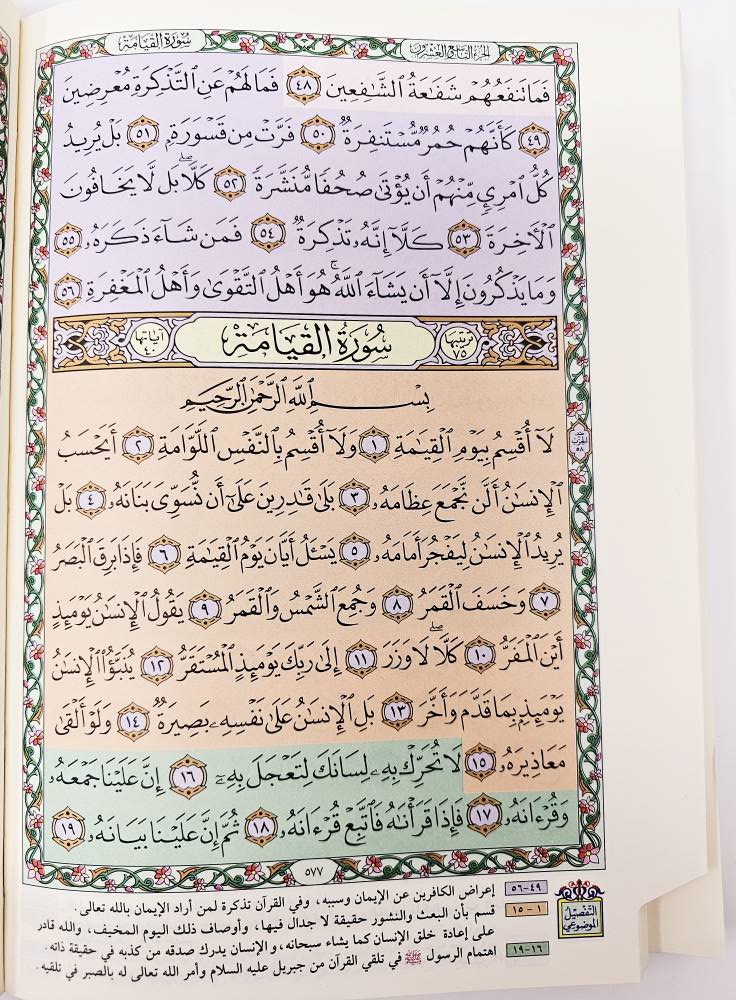 الجزء التاسع والعشرون
سورة القيامة
فَمَا تَنفَعُهُمْ شَفَٰعَةُ ٱلشَّٰفِعِينَ ٤٨ فَمَا لَهُمْ عَنِ ٱلتَّذْكِرَةِ مُعْرِضِينَ
٤٩ كَأَنَّهُمْ حُمُرٌ مُّسْتَنفِرَةٌ ٥٠ فَرَّتْ مِن قَسْوَرَةٍۭ ٥١ بَلْ يُرِيدُ
كُلُّ ٱمْرِئٍ مِّنْهُمْ أَن يُؤْتَىٰ صُحُفًا مُّنَشَّرَةً ٥٢ كَلَّاۖ بَل لَّا يَخَافُونَ
ٱلْأَخِرَةَ ٥٣ كَلَّآ إِنَّهُۥ تَذْكِرَةٌ ٥٤ فَمَن شَآءَ ذَكَرَهُۥ ٥٥
وَمَا يَذْكُرُونَ إِلَّآ أَن يَشَآءَ ٱللَّهُۚ هُوَ أَهْلُ ٱلتَّقْوَىٰ وَأَهْلُ ٱلْمَغْفِرَةِ ٥٦
ترتيبها ٧٥ سُورَةُ القِيَامَةِ آياتها ٤٠
بِسْمِ ٱللَّهِ ٱلرَّحْمَٰنِ ٱلرَّحِيمِ
لَآ أُقْسِمُ بِيَوْمِ ٱلْقِيَٰمَةِ ١ وَلَآ أُقْسِمُ بِٱلنَّفْسِ ٱللَّوَّامَةِ ٢ أَيَحْسَبُ
ٱلْإِنسَٰنُ أَلَّن نَّجْمَعَ عِظَامَهُۥ ٣ بَلَىٰ قَٰدِرِينَ عَلَىٰٓ أَن نُّسَوِّىَ بَنَانَهُۥ ٤ بَلْ
يُرِيدُ ٱلْإِنسَٰنُ لِيَفْجُرَ أَمَامَهُۥ ٥ يَسْـَٔلُ أَيَّانَ يَوْمُ ٱلْقِيَٰمَةِ ٦ فَإِذَا بَرِقَ ٱلْبَصَرُ
٧ وَخَسَفَ ٱلْقَمَرُ ٨ وَجُمِعَ ٱلشَّمْسُ وَٱلْقَمَرُ ٩ يَقُولُ ٱلْإِنسَٰنُ يَوْمَئِذٍ
أَيْنَ ٱلْمَفَرُّ ١٠ كَلَّاۖ لَا وَزَرَ ١١ إِلَىٰ رَبِّكَ يَوْمَئِذٍ ٱلْمُسْتَقَرُّ ١٢ يُنَبَّؤُا۟ ٱلْإِنسَٰنُ
يَوْمَئِذٍۭ بِمَا قَدَّمَ وَأَخَّرَ ١٣ بَلِ ٱلْإِنسَٰنُ عَلَىٰ نَفْسِهِۦ بَصِيرَةٌ ١٤ وَلَوْ أَلْقَىٰ
مَعَاذِيرَهُۥ ١٥ لَا تُحَرِّكْ بِهِۦ لِسَانَكَ لِتَعْجَلَ بِهِۦٓ ١٦ إِنَّ عَلَيْنَا جَمْعَهُۥ
وَقُرْءَانَهُۥ ١٧ فَإِذَا قَرَأْنَٰهُ فَٱتَّبِعْ قُرْءَانَهُۥ ١٨ ثُمَّ إِنَّ عَلَيْنَا بَيَانَهُۥ ١٩
الحزب
٥٨
٥٧٧
التفصيل
الموضوعي
٤٩-٥٦ إعراض الكافرين عن الإيمان وسببه، وفي القرآن تذكرة لمن أراد الإيمان بالله تعالى.
١ - ١٥ قسم بأن البعث والنشور حقيقة لا جدال فيها، وأوصاف ذلك اليوم المخيف، والله قادر
على إعادة خلق الإنسان كما يشاء سبحانه، والإنسان يدرك صدقه من كذبه في حقيقة ذاته.
١٦-١٩ اهتمام الرسول ﷺ في تلقي القرآن من جبريل عليه السلام وأمر الله تعالى له بالصبر في تلقيه.